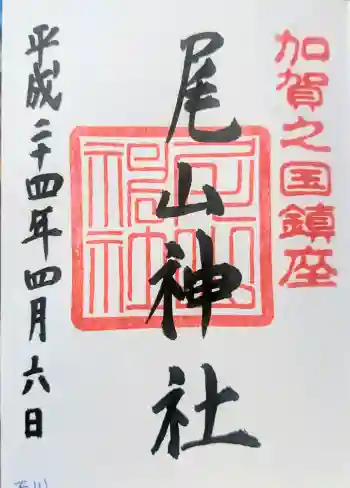 加賀之国鎮座
尾山神社
平成二十四年四月六日